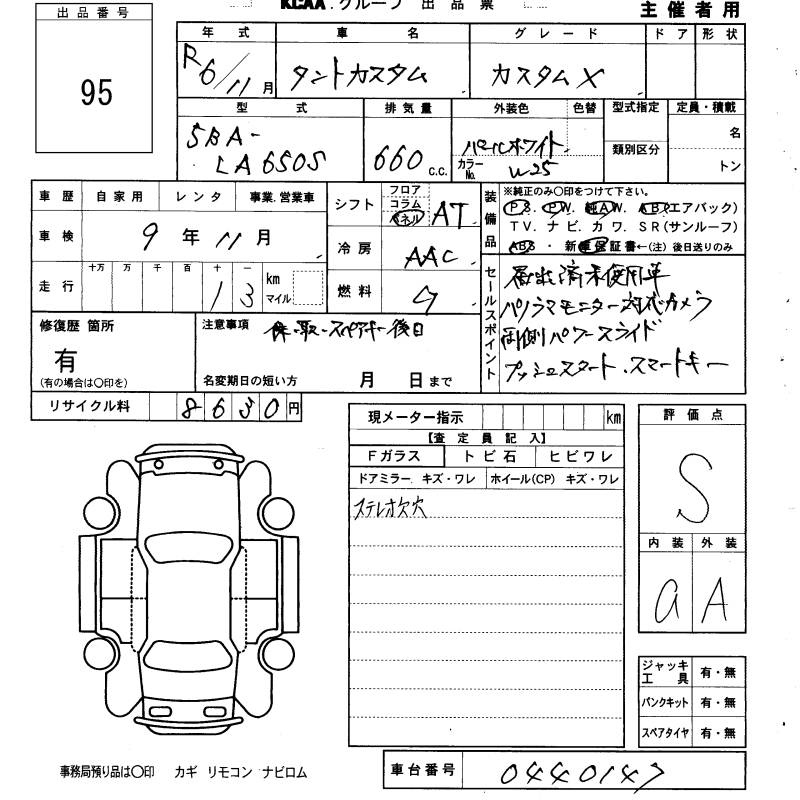 KCAA.グループ 出品票
主催者用
出品番号
95
年式 車名 グレード ドア 形状
R6/11月 タントカスタム カスタムX
型式 排気量 外装色 色替 型式指定 定員・積載
5BA-
LA650S
660 c.c.
パールホワイト
カラーNo. W25
類別区分
名
トン
車歴 自家用 レンタ 事業.営業車
車検 9年11月
走行 十万 万 千 百 十 一 km マイル
13
シフト フロア コラム パネル AT
冷房 AAC
燃料
装備品
※純正のみ○印をつけて下さい。
P S. P W. 純A W. A B (エアバック)
T V. ナビ. カワ. S R (サンルーフ)
A B S ・ 新車保証書←(注) 後日送りのみ
セールスポイント
届出済未使用車
パノラマモニター対応カメラ
両側パワースライド
プッシュスタート.スマートキー
修復歴 箇所
有
(有の場合は○印を)
注意事項
保・取・スペアキー後日
名変期日の短い方 月 日まで
リサイクル料 8630円
現メーター指示 km
【査定員記入】
Fガラス トビ石 ヒビワレ
ドアミラー. キズ・ワレ ホイール(CP) キズ・ワレ
ステレオ欠穴
評価点
S
内装 外装
a A
ジャッキ工具 有・無
パンクキット 有・無
スペアタイヤ 有・無
事務局預り品は○印 カギ リモコン ナビロム
車台番号 0440147